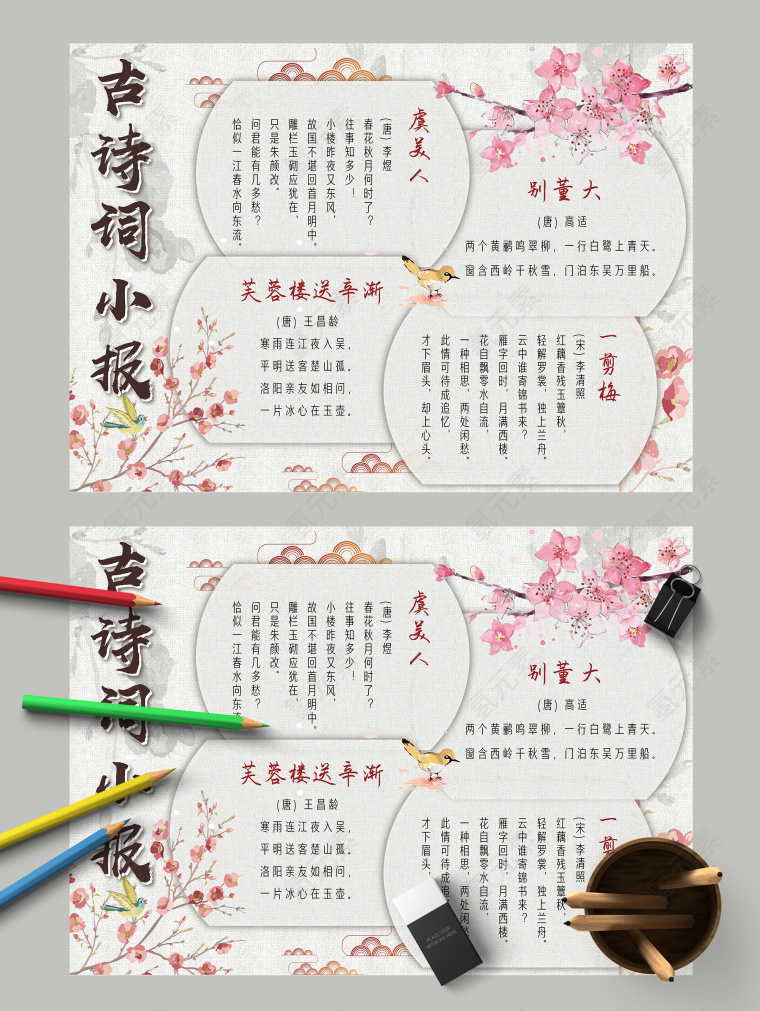 古诗词小报
虞美人
(唐) 李煜
春花秋月何时了?
往事知多少!
小楼昨夜又东风,
故国不堪回首月明中。
雕栏玉砌应犹在,
只是朱颜改。
问君能有几多愁?
恰似一江春水向东流。
别董大
(唐) 高适
两个黄鹂鸣翠柳, 一行白鹭上青天。
窗含西岭千秋雪, 门泊东吴万里船。
芙蓉楼送辛渐
(唐) 王昌龄
寒雨连江夜入吴,
平明送客楚山孤。
洛阳亲友如相问,
一片冰心在玉壶。
一剪梅
(宋) 李清照
红藕香残玉簟秋,
轻解罗裳, 独上兰舟。
云中谁寄锦书来?
雁字回时, 月满西楼。
花自飘零水自流,
一种相思, 两处闲愁。
此情可待成追忆,
才下眉头, 却上心头。
古诗词小报
虞美人
(唐) 李煜
春花秋月何时了?
往事知多少!
小楼昨夜又东风,
故国不堪回首月明中。
雕栏玉砌应犹在,
只是朱颜改。
问君能有几多愁?
恰似一江春水向东
别董大
(唐) 高适
两个黄鹂鸣翠柳, 一行白鹭上青天。
窗含西岭千秋雪, 门泊东吴万里船。
芙蓉楼送辛渐
(唐) 王昌龄
寒雨连江夜入吴,
平明送客楚山孤。
洛阳亲友如相问,
一片冰心在玉壶。
一剪
(宋) 李清照
红藕香残玉簟秋,
轻解罗裳, 独上兰舟。
云中谁寄锦书来?
雁字回时, 月满西楼。
花自飘零水自流,
一种相思, 两处闲愁
此情可待成追
才下眉头,
PLACE YOUR
ARTWORK HERE